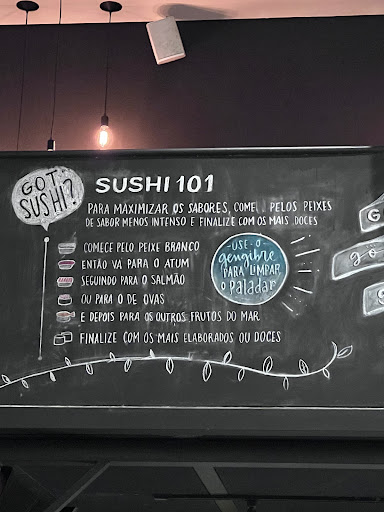 GOT
SUSHI?
SUSHI 101
PARA MAXIMIZAR OS SABORES, COME PELOS PEIXES
DE SABOR MENOS INTENSO E FINALIZE COM OS MAIS DOCES
COMECE PELO PEIXE BRANCO
ENTÃO VÁ PARA O ATUM
SEGUINDO PARA O SALMÃO
OU PARA O DE OVAS
E DEPOIS PARA OS OUTROS FRUTOS DO MAR
FINALIZE COM OS MAIS ELABORADOS OU DOCES
-USE-O
gengibre
PARA LIMPAR
O PALADAR